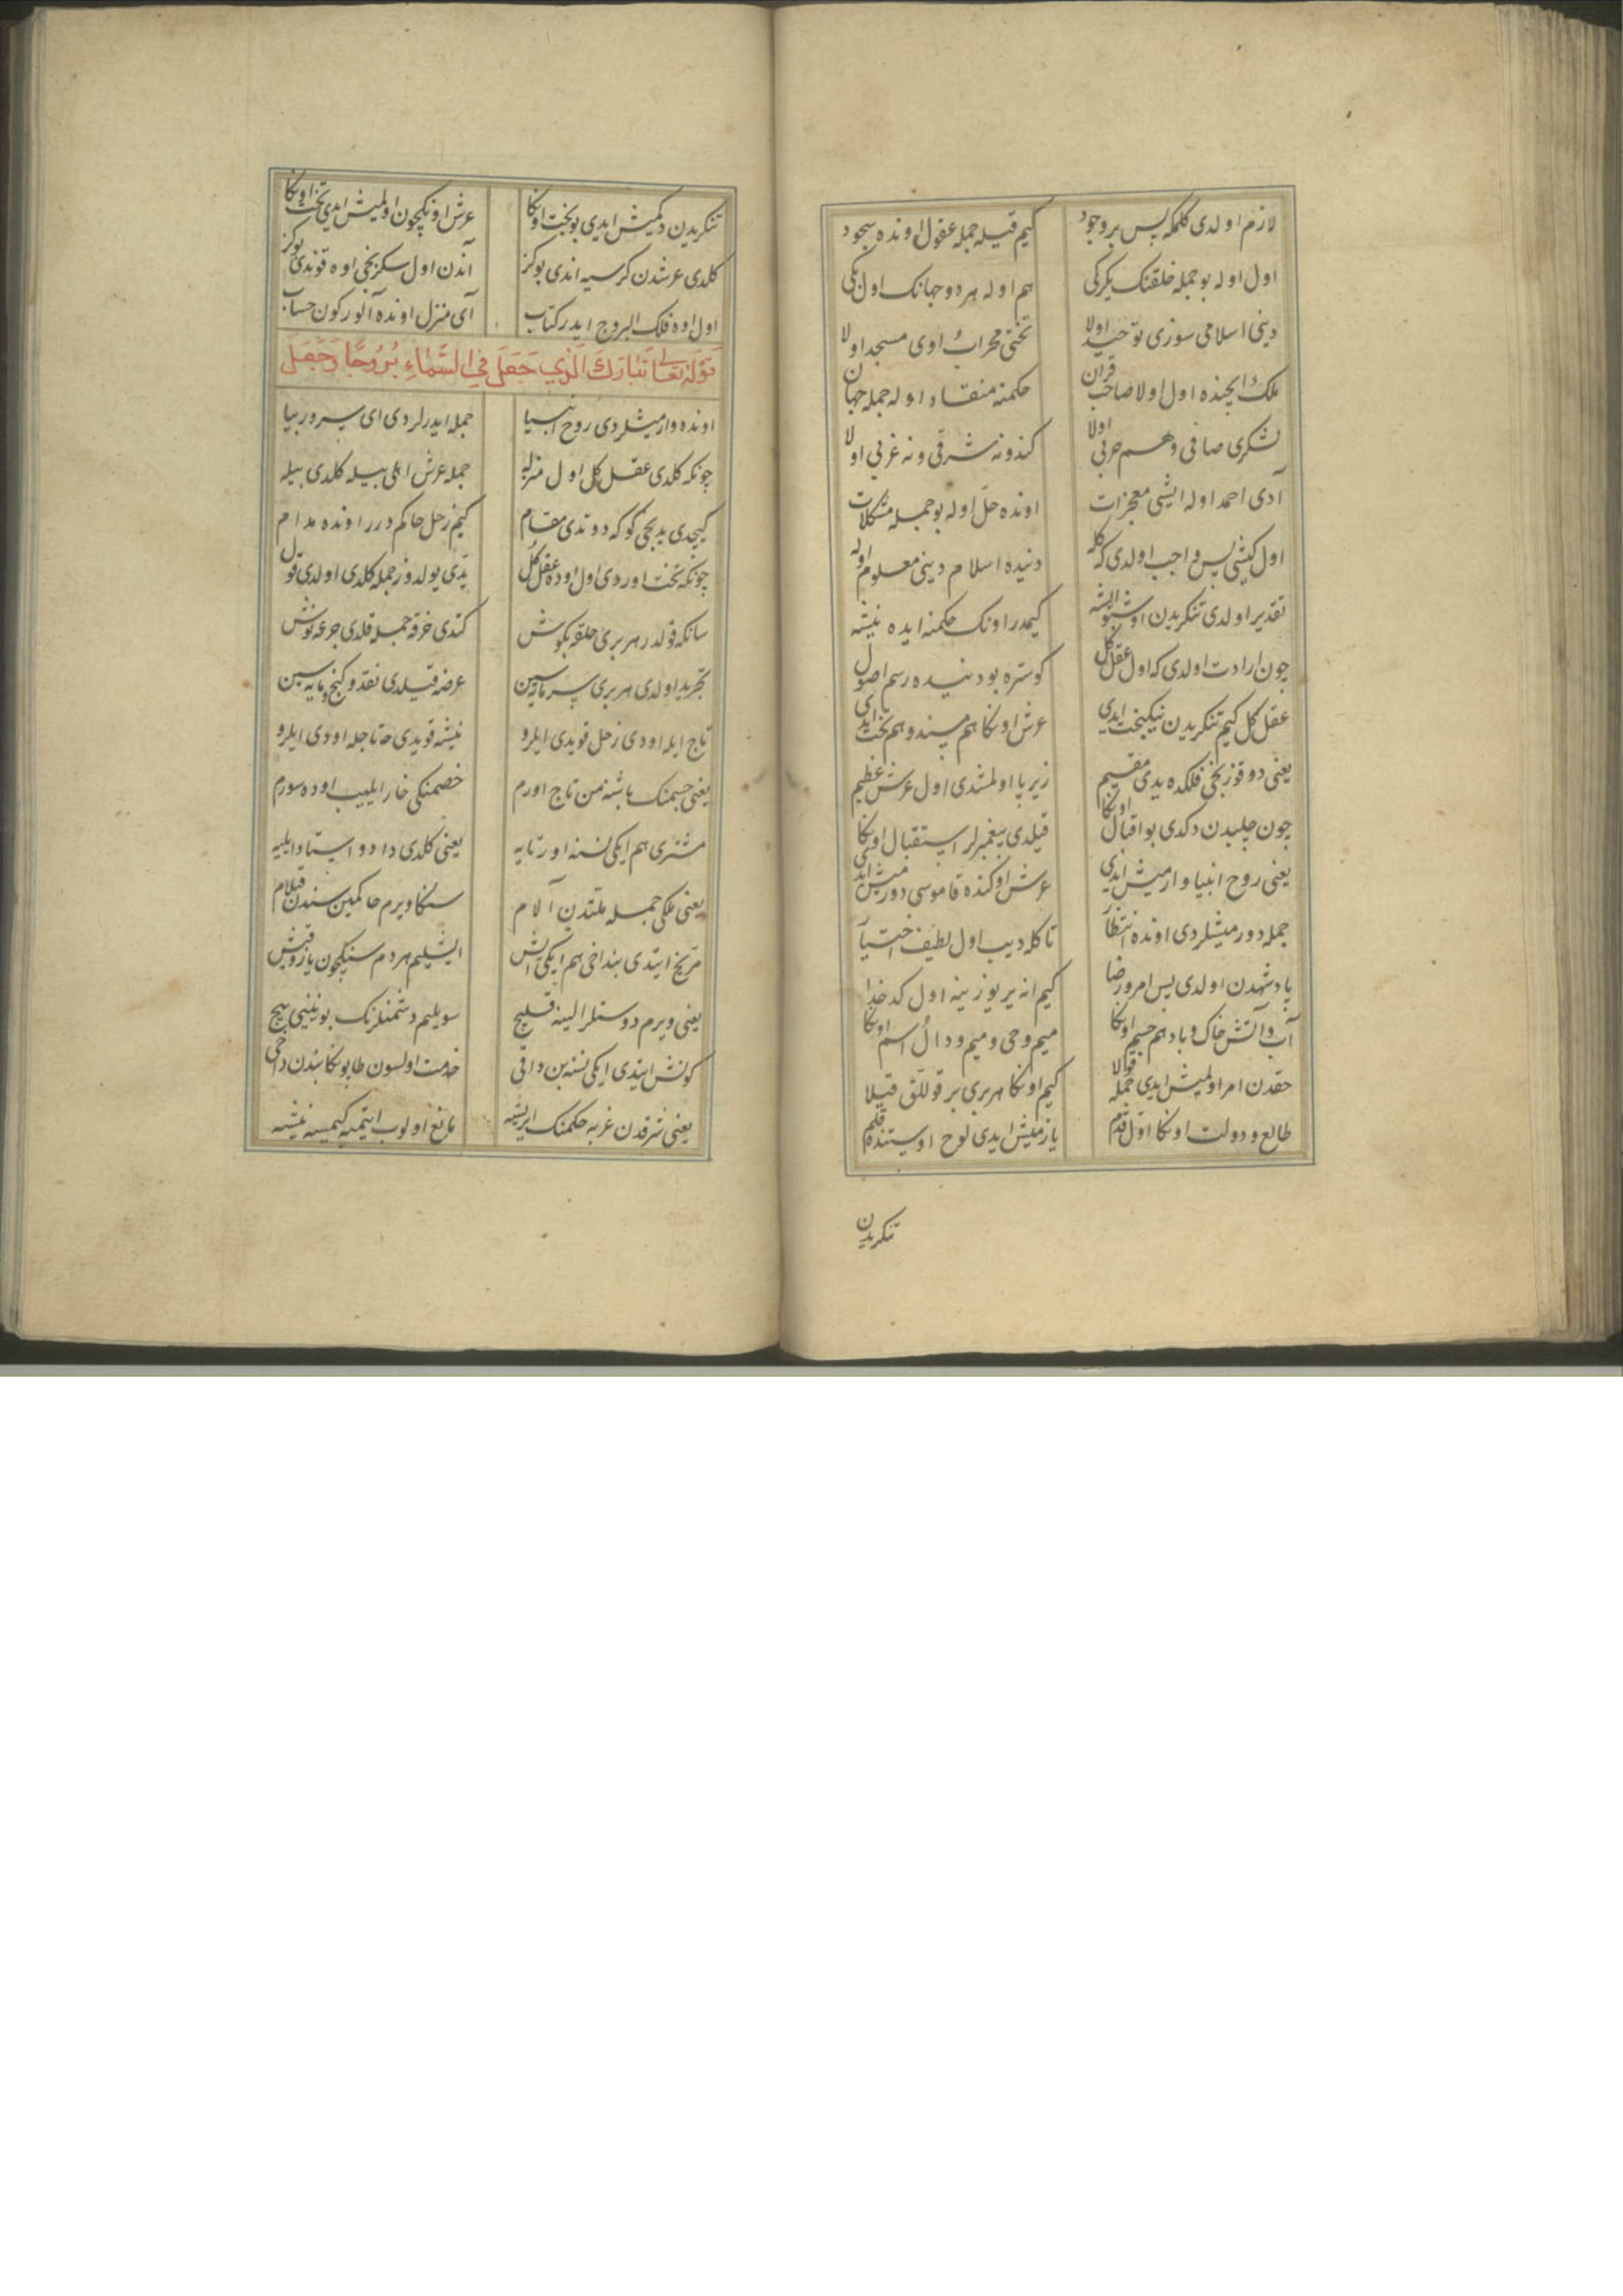 لازم اولدی کلمکه پس بر وجود
کیم قیله جمله عقول اونده سجود
اول اوله بو جمله خلقنک یکرکی
هم اوله هر دو جهانک اول بکی
دینی اسلامی سوزی توحید اولا
تختی محراب اوی مسجد اولا
ملک ایچنده اول اولا صاحب قران
حکمنه منقاد اوله جمله جهان
لشکری صافی وهم حربی اولا
کندو نه شرقی و نه غربی اولا
آدی احمد اوله ایشی معجزات
اونده حل اوله بو جمله مشکلات
اول کیشی پس واجب اولدی که کله
دنیده اسلام دینی معلوم اوله
تقدیر اولدی تنکریدن اوشبو ایشه
کیمدر اونک حکمنه ایده نیشه
چون ارادت اولدی که اول عقل کل
کوستره بو دنیده رسم اصول
عقل کل کیم تنکریدن نیکبخت ایدی
عرش اونکا هم مسند و هم تخت ایدی
یعنی دوقوزنجی فلکده یدی مقیم
زیر پا اولمشدی اول عرش عظیم
چون چلبدن دکدی بو اقبال اونکا
قیلدی پیغمبرلر استقبال اونکا
یعنی روح انبیا وارمیش ایدی
عرش اوکنده قاموسی دورمیش ایدی
جمله دورمیشلردی اونده انتظار
تا کله دیب اول لطیف اختیار
پادشهدن اولدی پس امر و رضا
کیم انه یر یوزینه اول کدخدا
آب و آتش خاک و باد هم جسم اونکا
میم و حی و میم و دال اسم اونکا
حقدن امر اولمیش ایدی جمله قوللا
کیم اونکا هر بری بر قوللق قیلا
طالع و دولت اونکا اول قدم
یازمیش ایدی لوح اوستنده قلم
تنکریدن
تنکریدن دکمیش ایدی بو بخت اونکا
عرش اونکچون اولمیش ایدی تخت اونکا
کلدی عرشدن کرسیه اندی بو کز
آندن اول سکزنجی اوه قوندی بو کز
اول اوه فلک البروج ایدر کتاب
آی منزل اونده آلور کون حساب
قوله تعالی تبارک الذی جعل فی السماء بروجا وجعل
اونده وارمیشلردی روح انبیا
جمله ایدرلردی ای سرور بیا
چونکه کلدی عقل کل اول منزله
جمله عرش اهلی بیله کلدی بیله
کیچدی یدنجی کوکه دوتدی مقام
کیم زحل حاکم درر اونده مدام
چونکه تخت اوردی اول اوده عقل کل
یدی یولدوز جمله کلدی اولدی قول
سانکه قولدر هر بری حلقه بکوش
کتدی خرقه جمله قلدی جرعه نوش
تجرید اولدی هر بری سرمایه سین
عرضه قیلدی نقد و کنج و مایه سین
تاج ایله اودی زحل قویدی ایلرو
نیشه قویدی تا تاجله اودی ایلرو
یعنی جسمنک باشنه من تاج اورم
خصمنکی خار ایلییب اوده سورم
مشتری هم ایکی نسنه اورتایه
یعنی کلدی داد و استاد ایلیه
یعنی ملکی جمله ملتدن آلام
سنکا ویرم حاکمین سندن قیلام
مریخ ایتدی بنداخی هم ایکی ایش
ایشلیم هر دم سنکچون یاز و قیش
یعنی ویرم دوستلر الینه قلیچ
سویلیم دشمنلرنک بوینینی بیچ
کونش ایتدی ایکی نسنه بن داقی
خدمت اولسون طابونکا بندن داخی
یعنی شرقدن غربه حکمنک ایریشه
مانع اولوب ایتمیه کیمسه نیشه